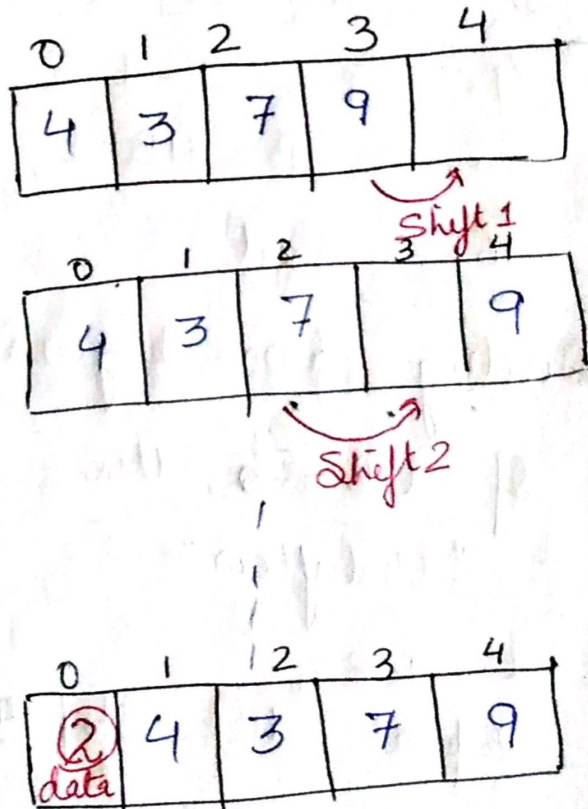 0 1 2 3 4
4 3 7 9
Shift 1
0 1 2 3 4
4 3 7 9
Shift 2
0 1 2 3 4
2 4 3 7 9
data